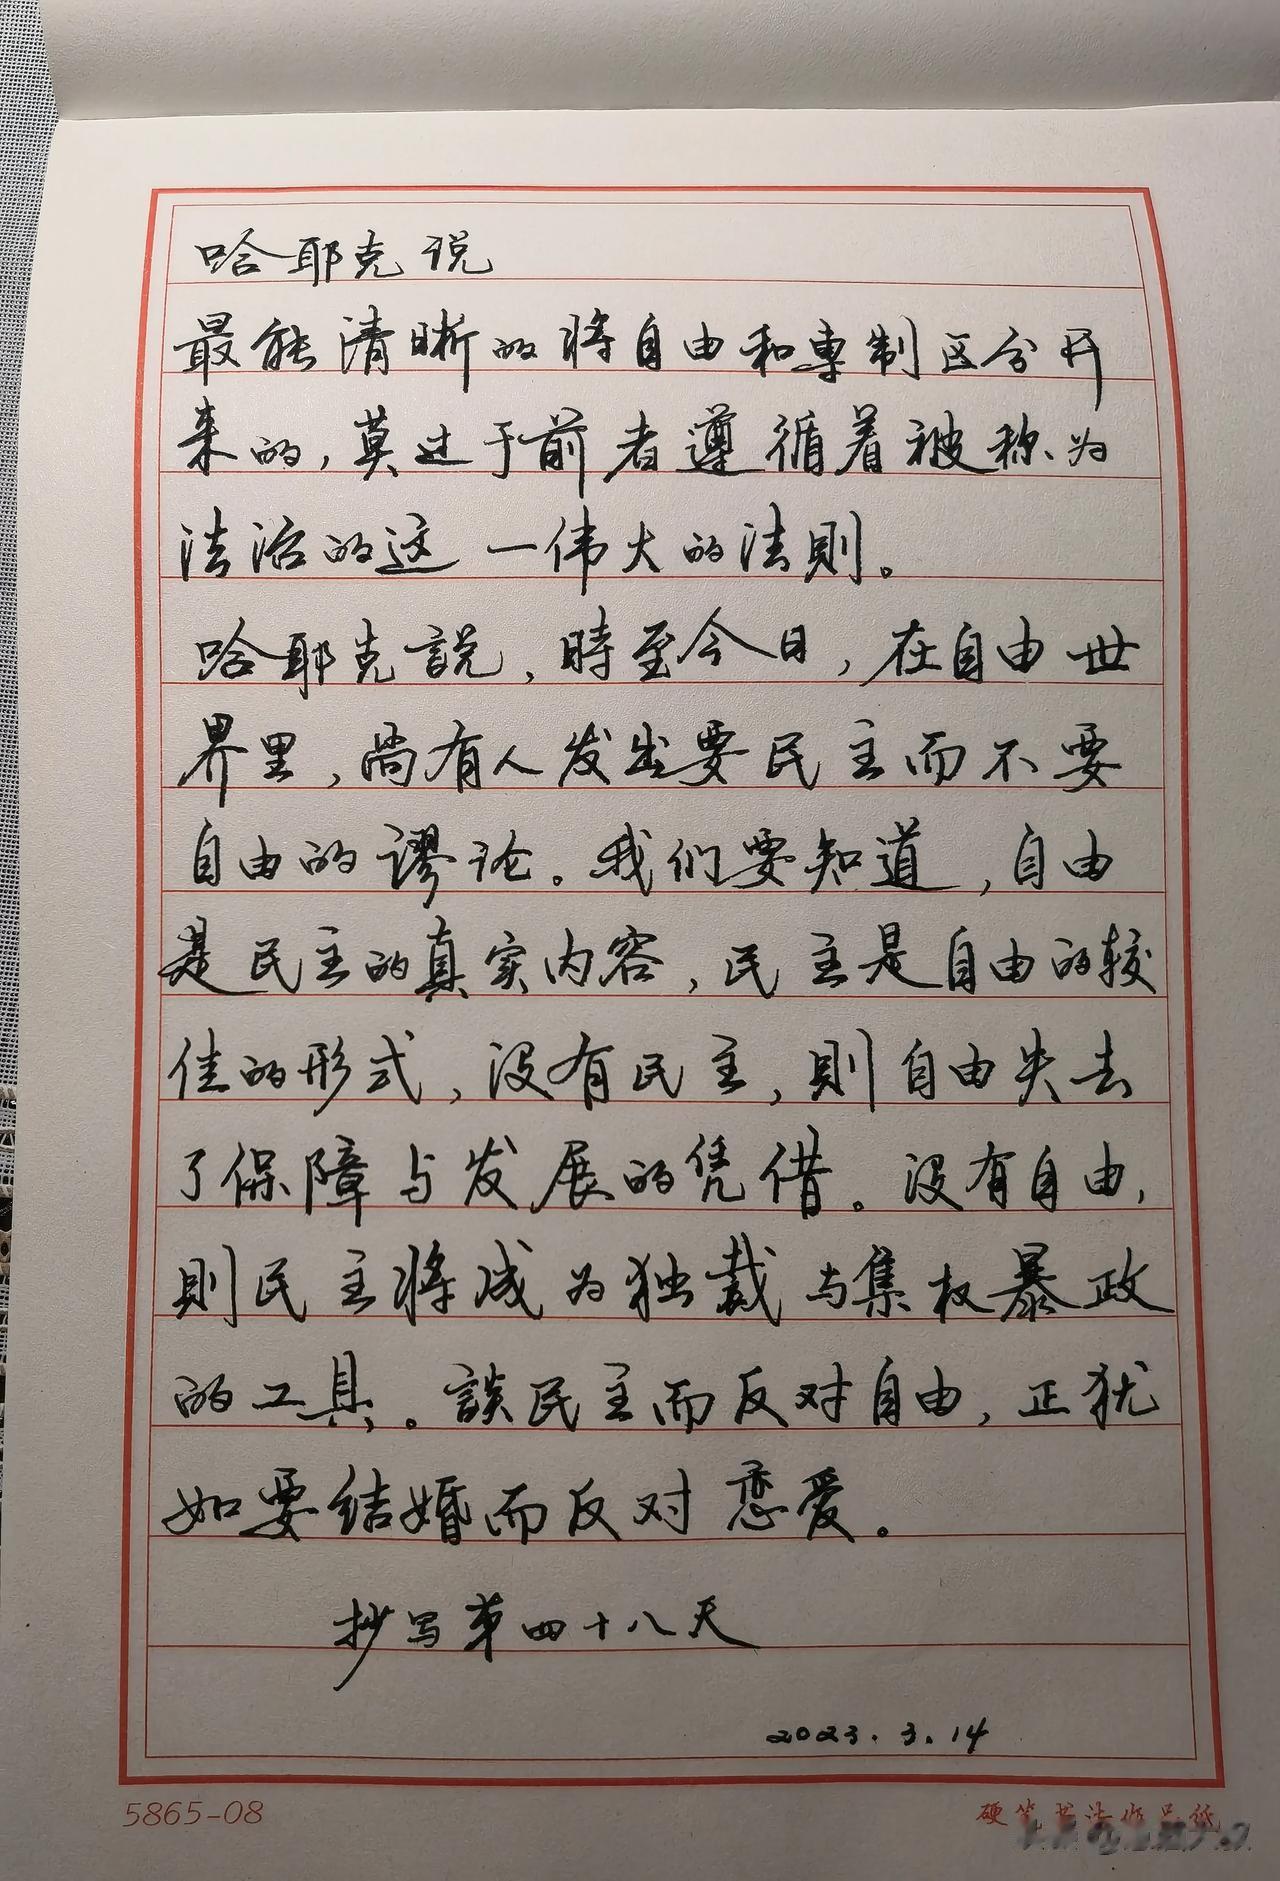 哈耶克说
最能清晰的将自由和專制区分开
来的，莫过于前者遵循着被称为
法治的这一伟大的法則。
哈耶克説，時至今日，在自由世
界里，尚有人发出要民主而不要
自由的谬论。我们要知道，自由
是民主的真实内容，民主是自由的较
佳的形式，没有民主，則自由失去
了保障与发展的凭借。没有自由，
則民主将成为独裁与集权暴政
的工具。談民主而反对自由，正犹
如要结婚而反对恋爱。
抄写第四十八天
2023.3.14
5865-08
硬笔书法作品纸